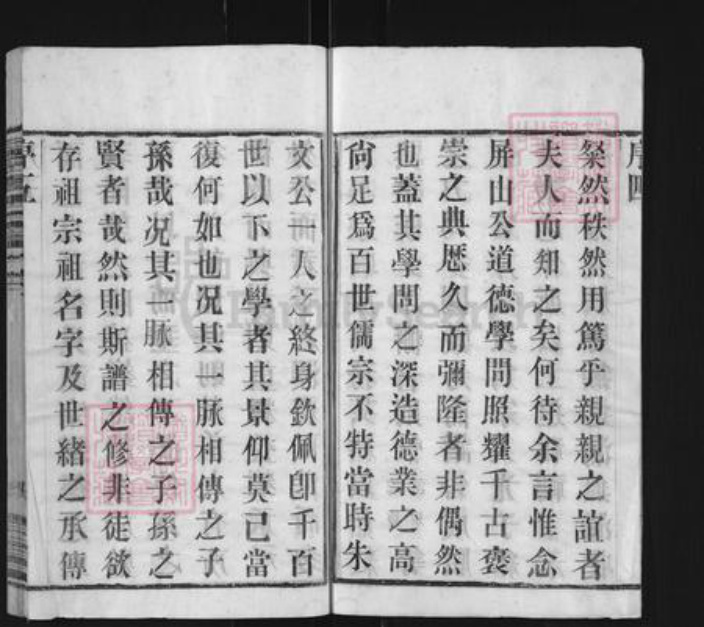 序四
粲然秩然用篤乎親親之誼者
夫人而知之矣何待余言惟念
屏山公道德學問照耀千古褒
崇之典歷久而彌隆者非偶然
也蓋其學問之深造德業之高
尚足爲百世儒宗不特當時朱
文公一人之終身欽佩卽千百
世以下之學者其景仰莫已當
復何如也况其一脉相傳之子
孫哉况其一脉相傳之子孫之
賢者哉然則斯譜之修非徒欲
存祖宗祖名字及世緒之承傳
序五
FamilySearch